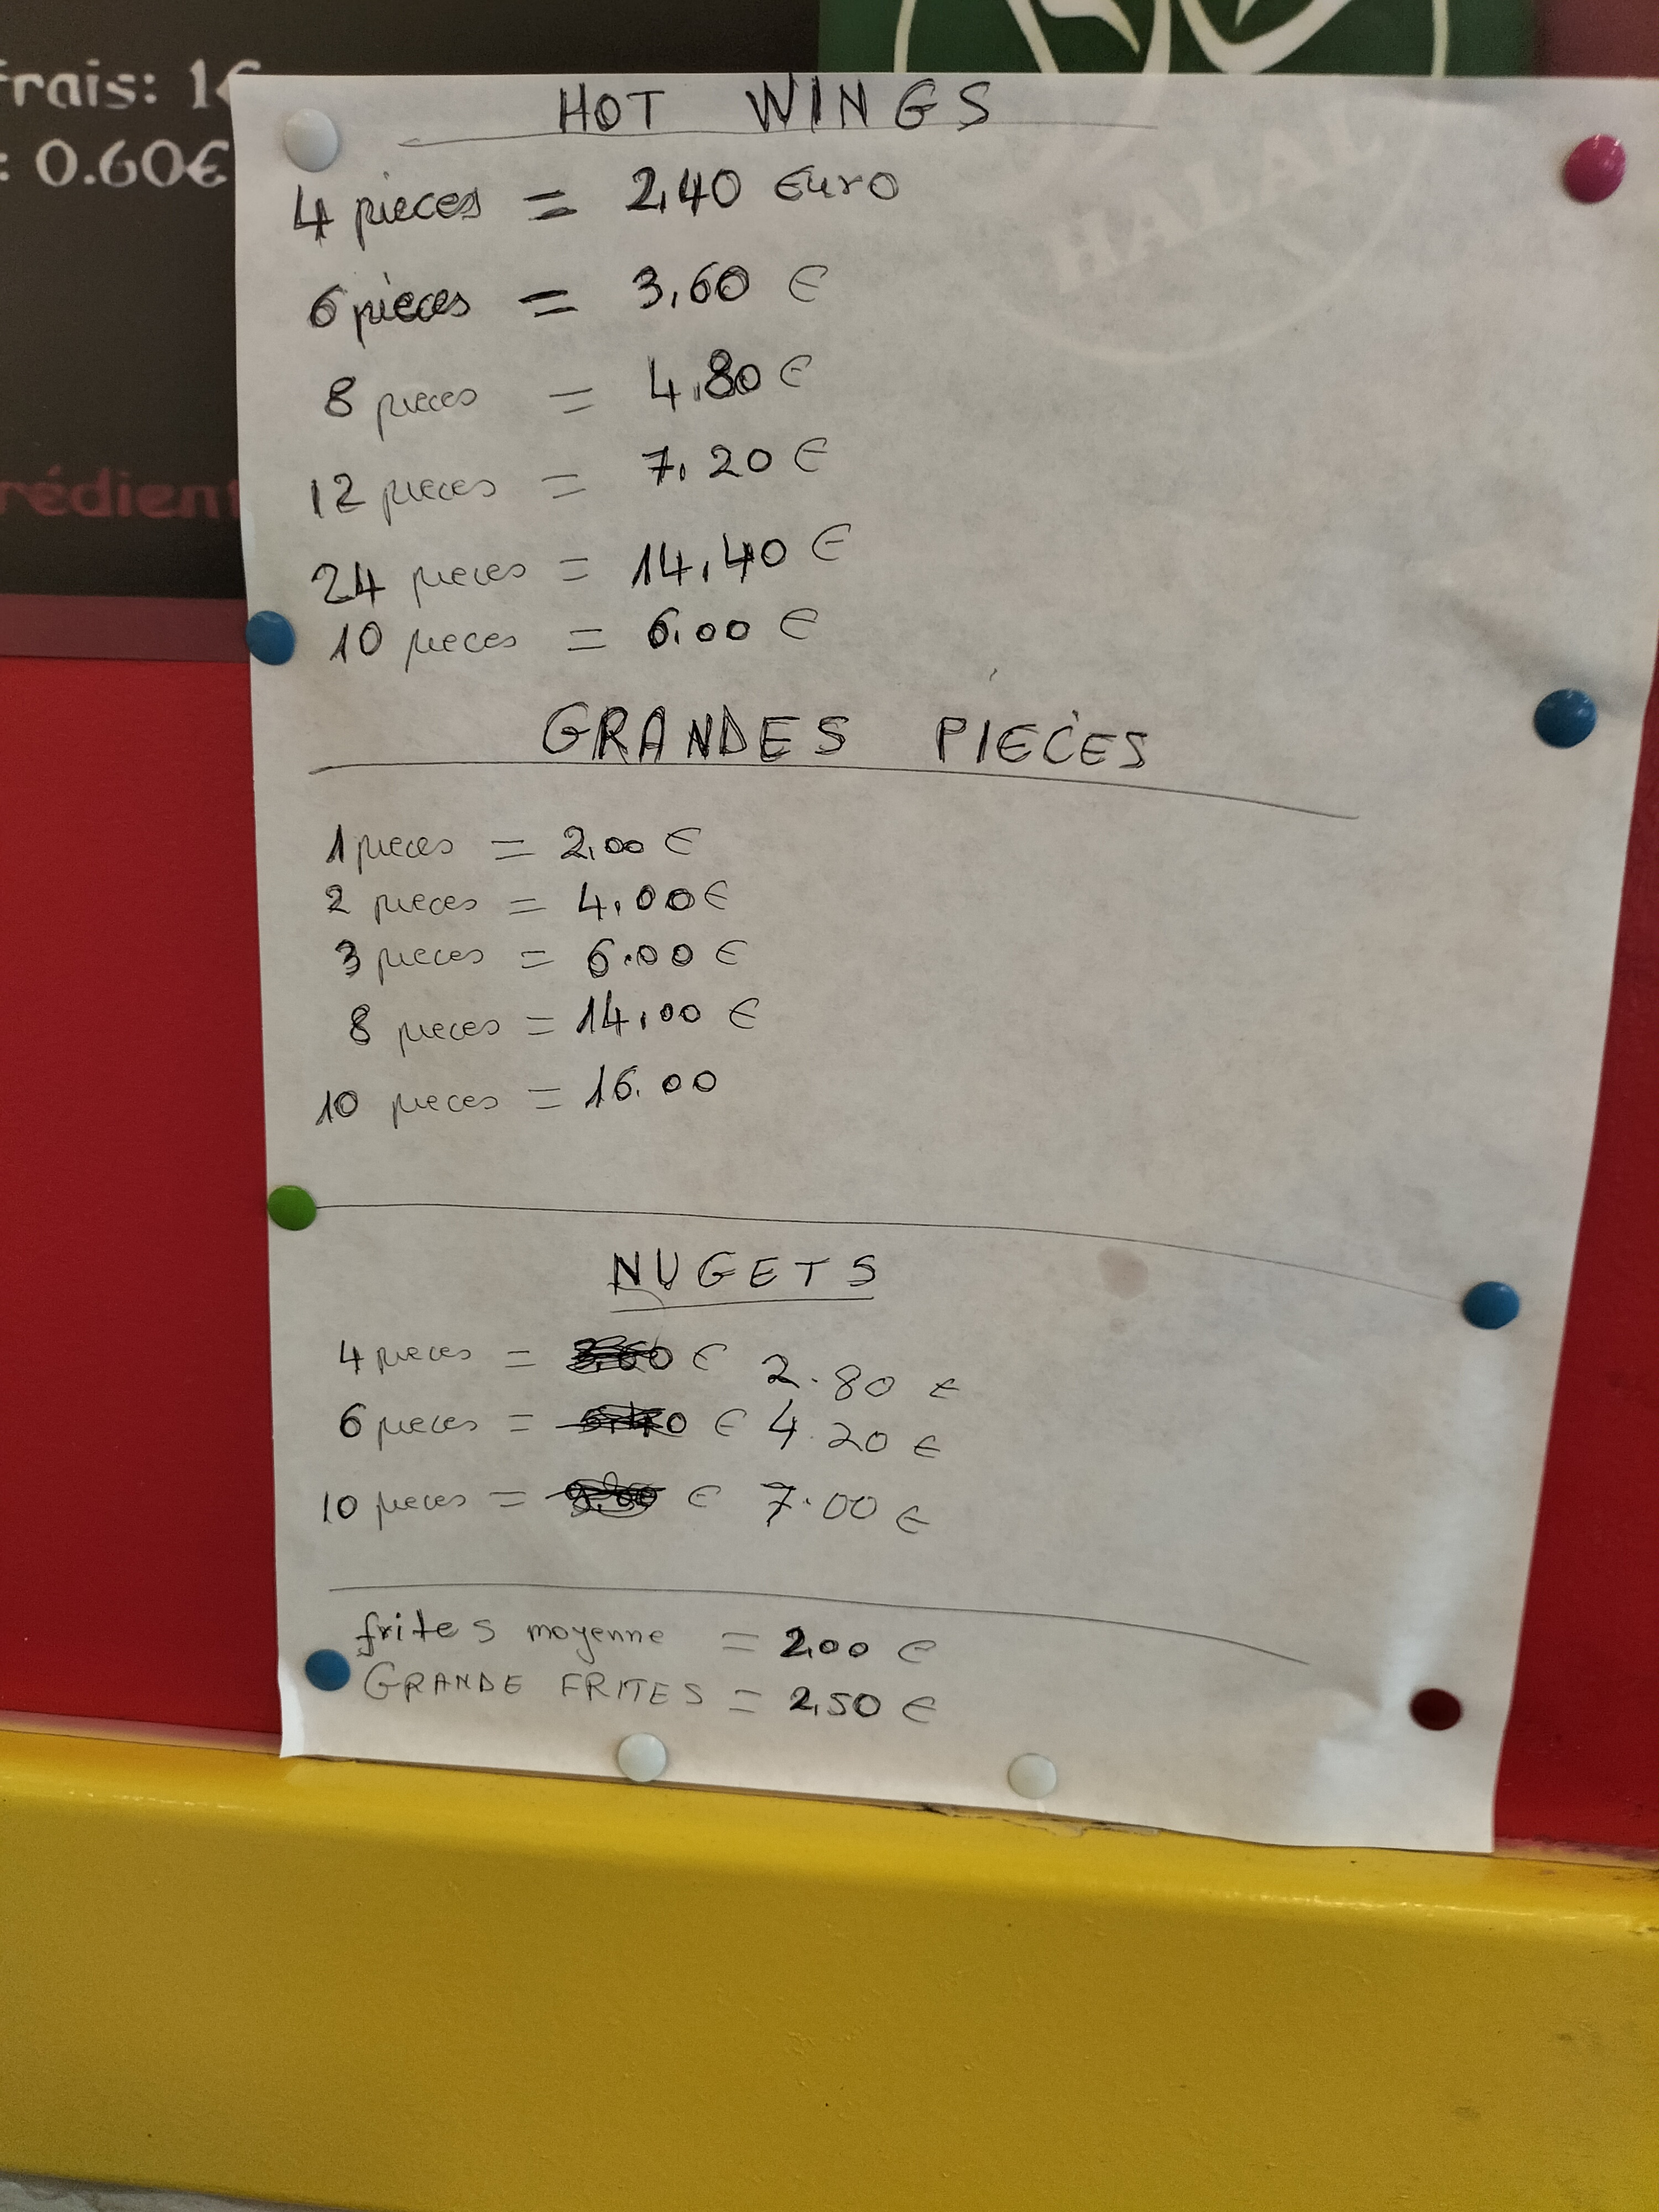 frais: 1€
: 0.60€
rédient
HALAL
HOT WINGS
4 pieces = 2,40 Euro
6 pièces = 3,60 €
8 pieces = 4,80 €
12 pieces = 7,20 €
24 pieces = 14,40 €
10 pieces = 6,00 €
GRANDES PIÈCES
1 pieces = 2,00 €
2 pieces = 4,00 €
3 pieces = 6.00 €
8 pieces = 14,00 €
10 pieces = 16.00
NUGETS
4 pieces = € 2.80 €
6 pieces = € 4.20 €
10 pieces = € 7.00 €
frites moyenne = 2,00 €
GRANDE FRITES = 2,50 €